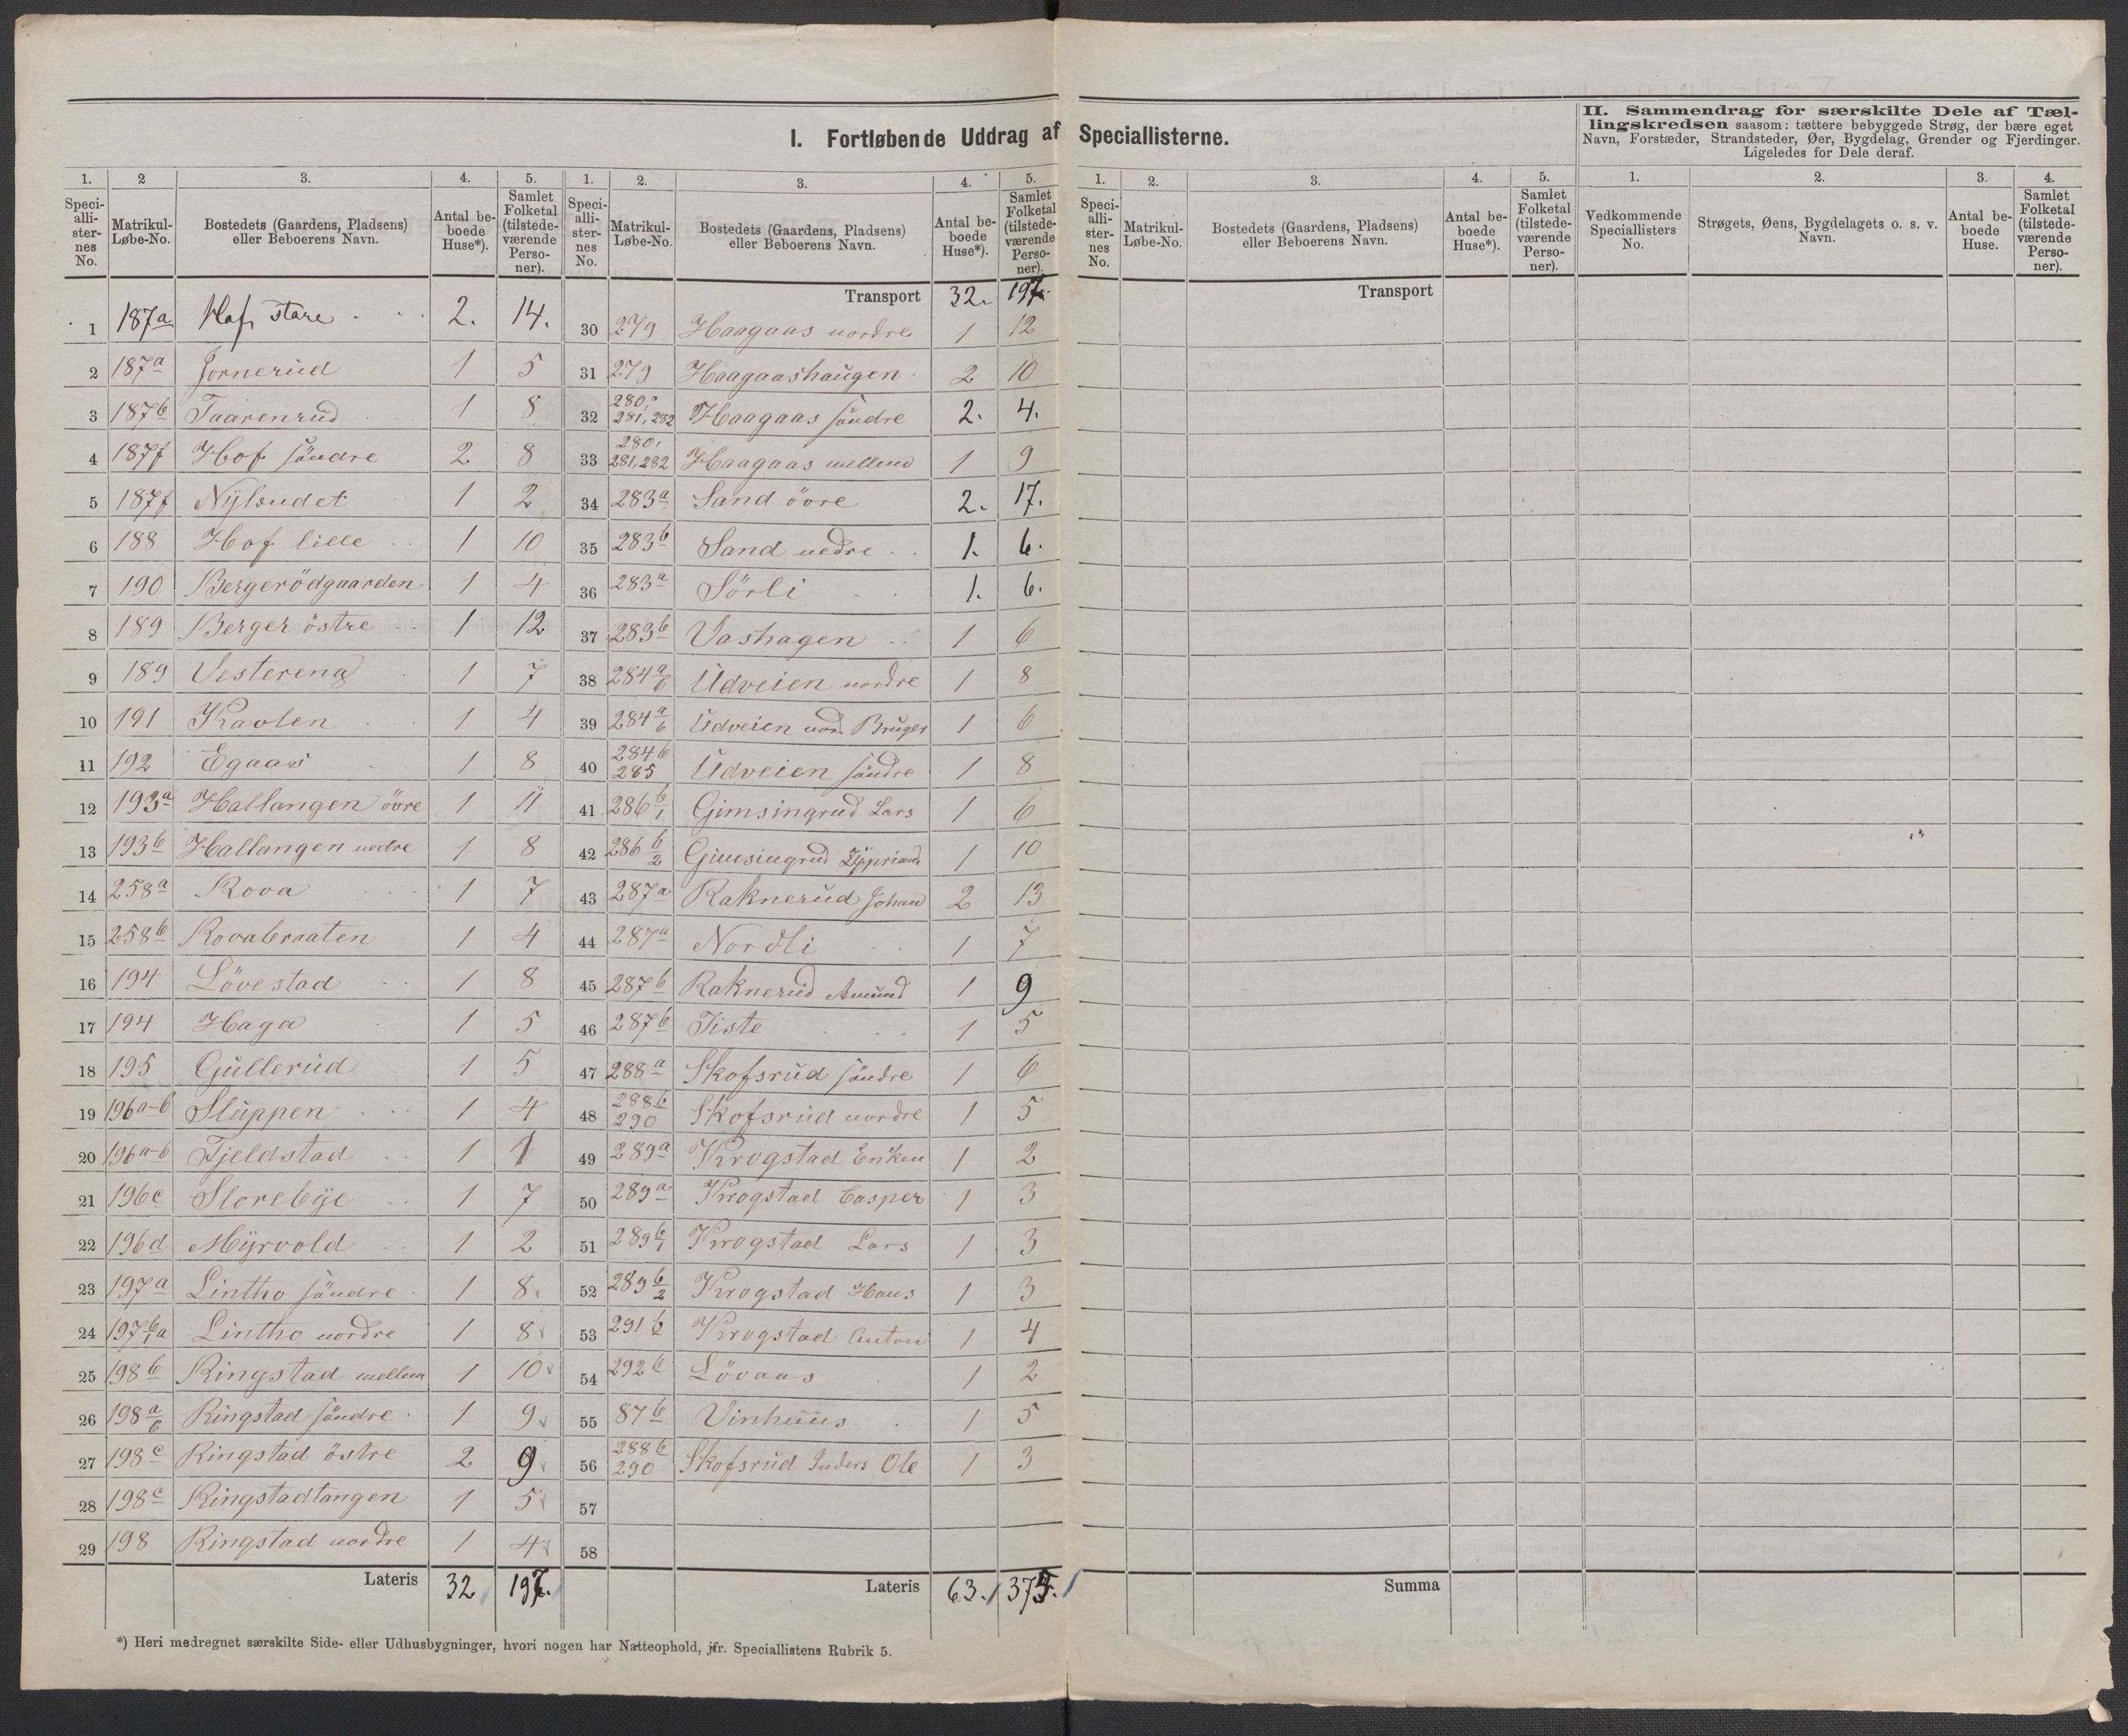 I. Fortløbende Uddrag af Speciallisterne.
II. Sammendrag for særskilte Dele af Tæl-
lingskredsen saasom: tættere bebyggede Strøg, der bære eget
Navn, Forstæder, Strandsteder, Øer, Bygdelag, Grender og Fjerdinger.
Ligeledes for Dele deraf.
1. 2 3. 4. 5. 1. 2. 3. 4. 5. 1. 2. 3. 4. 5. 1. 2. 3. 4.
Speci-alli-ster-nes No. Matrikul-Løbe-No. Bostedets (Gaardens, Pladsens) eller Beboerens Navn. Antal be-boede Huse*). Samlet Folketal (tilstede-værende Perso-ner).
Speci-alli-ster-nes No. Matrikul-Løbe-No. Bostedets (Gaardens, Pladsens) eller Beboerens Navn. Antal be-boede Huse*). Samlet Folketal (tilstede-værende Perso-ner).
Speci-alli-ster-nes No. Matrikul-Løbe-No. Bostedets (Gaardens, Pladsens) eller Beboerens Navn. Antal be-boede Huse*). Samlet Folketal (tilstede-værende Perso-ner).
Vedkommende Speciallisters No. Strøgets, Øens, Bygdelagets o. s. v. Navn. Antal be-boede Huse. Samlet Folketal (tilstede-værende Perso-ner).
1 187a Hof store 2. 14.
2 187a Jornerud 1 5
3 187b Taarenrud 1 8
4 187f Hof söndre 2 8
5 187f Nÿbrudet 1 2
6 188 Hof lille 1 10
7 190 Bergerödgaarden 1 4
8 189 Berger östre 1 12
9 189 Vestereng 1 7
10 191 Kaolen 1 4
11 192 Egaas 1 8
12 193a Hallangen övre 1 11
13 193b Hallangen nedre 1 8
14 258a Rova 1 7
15 258b Rovabraaten 1 4
16 194 Lövestad 1 8
17 194 Haga 1 5
18 195 Gullerud 1 5
19 196a-b Sluppen 1 4
20 196a-b Fjeldstad 1 1
21 196c Storebÿe 1 7
22 196d Mÿrvold 1 2
23 197a Lintho söndre 1 8
24 197b/1a Lintho nordre 1 8
25 198b Ringstad mellem 1 10
26 198a/b Ringstad söndre 1 9
27 198c Ringstad östre 2 9
28 198c Ringstadtangen 1 5
29 198 Ringstad nordre 1 4
Lateris 32 197.
Transport 32. 197.
30 279 Haagaas nordre 1 12
31 279 Haagaashaugen 2 10
32 280, 281, 282 Haagaas söndre 2. 4.
33 280, 281, 282 Haagaas mellem 1 9
34 283a Sand övre 2. 17.
35 283b Sand nedre 1. 6.
36 283a Sörli 1. 6.
37 283b Vashagen 1 6
38 284a/b Udveien nordre 1 8
39 284a/b Udveien nord Bruger 1 6
40 284b 285 Udveien söndre 1 8
41 286b/1 Gimsingrud Lars 1 6
42 286b/2 Gimsingrud Zÿprian 1 10
43 287a Raknerud Johan 2 13
44 287a Nordli 1 7
45 287b Raknerud Amund 1 9
46 287b Tiste 1 5
47 288a Skofsrud söndre 1 6
48 288b 290 Skofsrud nordre 1 5
49 289a Krogstad Enken 1 2
50 289a Krogstad Casper 1 3
51 289b/1 Krogstad Lars 1 3
52 289b/2 Krogstad Hans 1 3
53 291b Krogstad Anton 1 4
54 292b Lövaas 1 2
55 87b Vinhuus 1 5
56 288b 290 Skofsrud Inders Ole 1 3
57
58
Lateris 63. 375.
Transport
Summa
*) Heri medregnet særskilte Side- eller Udhusbygninger, hvori nogen har Natteophold, jfr. Speciallistens Rubrik 5.